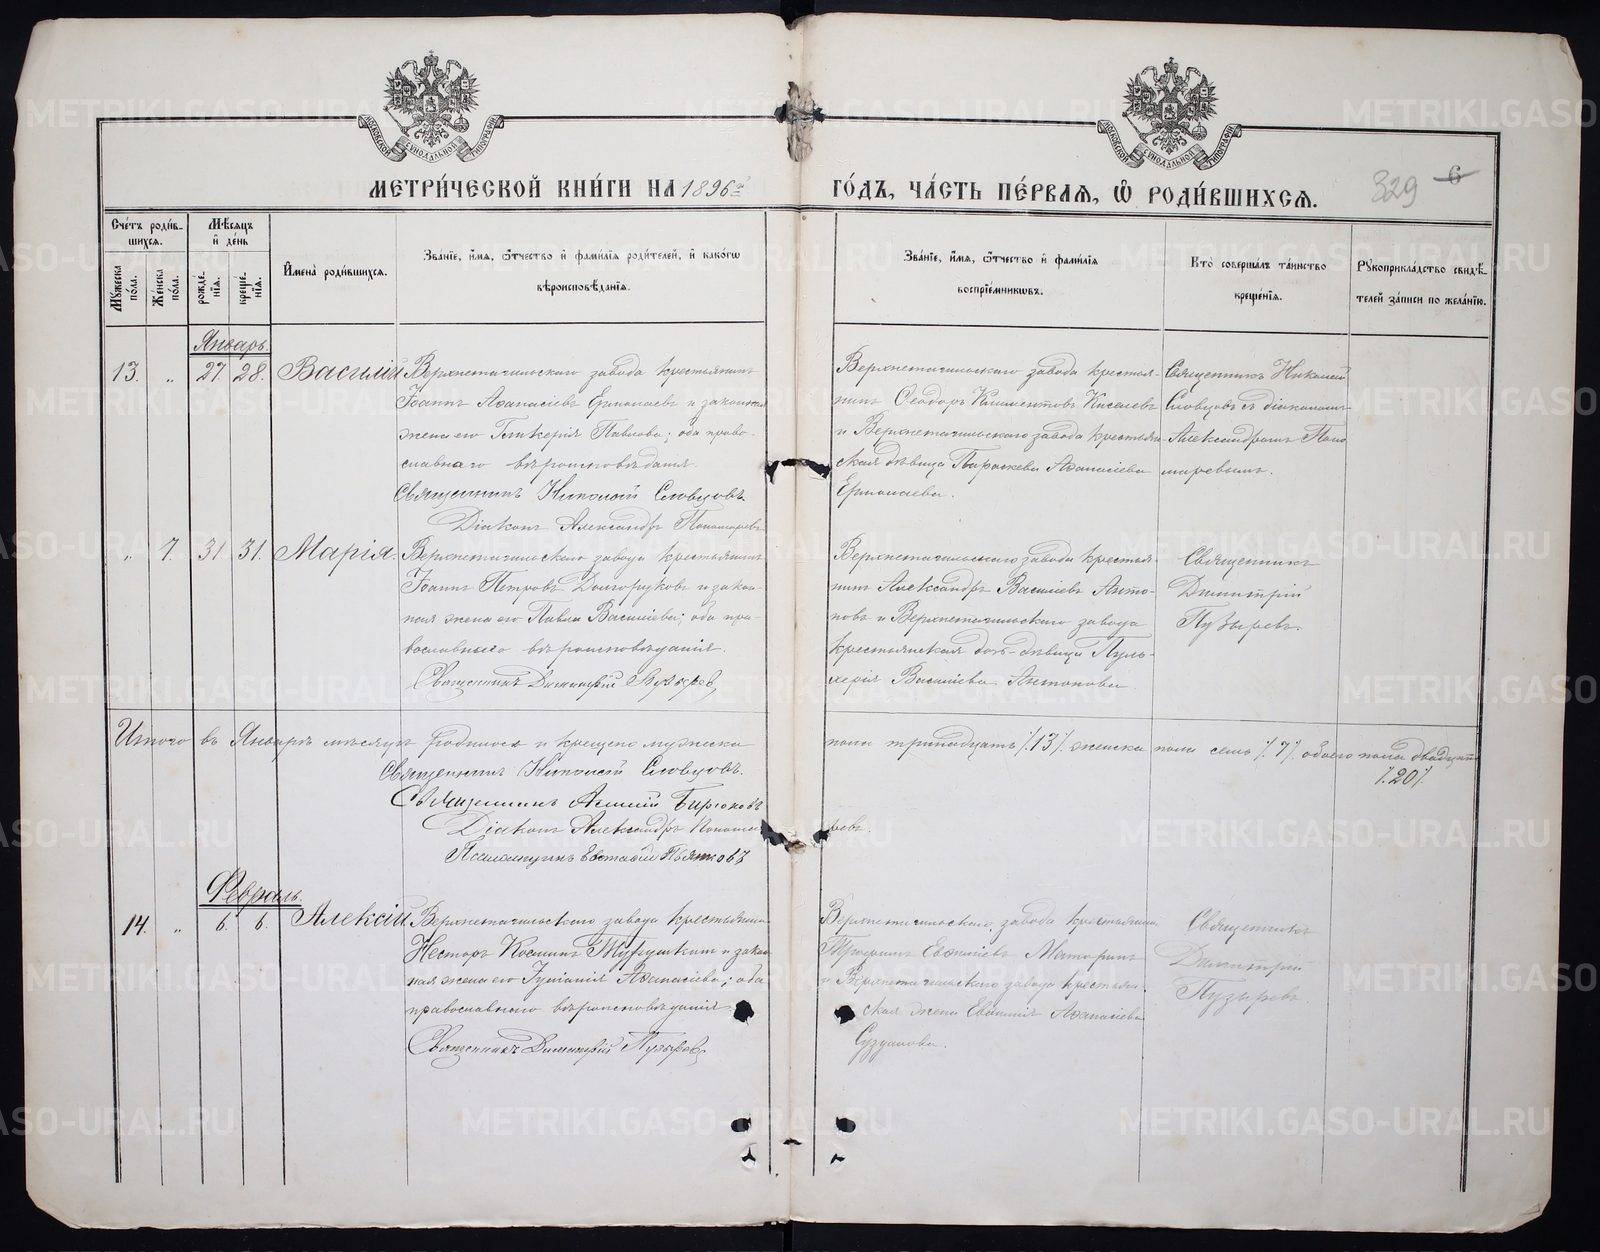 МОСКОВСКОЙ СѴНОДАЛЬНОЙ ТИПОГРАФІИ
МОСКОВСКОЙ СѴНОДАЛЬНОЙ ТИПОГРАФІИ
МЕТРИ́ЧЕСКОЙ КНИ́ГИ НА 1896й
ГО́ДЪ, ЧА́СТЬ ПЕ́РВАѦ, Ѽ РОДИ́ВШИХСѦ.
329 6
Сче́тъ роди́в-
шихся.
Мꙋ́жеска по́ла.
Же́нска по́ла.
Мѣ́сяцъ и де́нь
рожде́нїя.
креще́нїя.
И҆мена̀ роди́вшихся.
Зва́нїе, и҆́мя, ѻ҆́тчество и҆ фами́лїя роди́телей, и҆ како́гѡ
вѣроисповѣ́данїя.
Зва́нїе, и҆́мя, ѻ҆́тчество и҆ фами́лїя
воспрїе́мникѡвъ.
Кто̀ соверша́лъ та́инство
креще́нїя.
Рꙋкоприкла́дство свидѣ́-
телей за́писи по жела́нїю.
Январь.
13. „ 27. 28. Василій
Верхнетагильскаго завода крестьянинъ
Іоаннъ Аѳанасіевъ Ермолаевъ и законная
жена его Гликерія Павлова; оба право-
славнаго вѣроисповѣданія.
Священникъ Николай Словцовъ
Діаконъ Александръ Пономаревъ
Верхнетагильскаго завода крестья-
нинъ Ѳеодоръ Климентовъ Киселевъ
и Верхнетагильскаго завода крестьян-
ская дѣвица Параскева Аѳанасіева
Ермолаева.
Священникъ Николай
Словцовъ съ діакономъ
Александромъ Поно
маревымъ.
„ 7. 31. 31. Марія.
Верхнетагильскаго завода крестьянинъ
Іоаннъ Петровъ Долгоруковъ и закон-
ная жена его Павла Василіева; оба пра-
вославнаго вѣроисповѣданія.
Священникъ Димитрій Пузыревъ
Верхнетагильскаго завода крестья-
нинъ Александръ Василіевъ Анто-
новъ и Верхнетагильскаго завода
крестьянская дочь-дѣвица Пуль-
херія Василіева Антонова.
Священникъ
Димитрій
Пузыревъ.
Итого въ Январѣ мѣсяцѣ родилось и крещено мужеска
пола тринадцать /.13/. женска пола семь /.7/. обоего пола двадцать
/.20/.
Священникъ Николай Словцовъ.
Священникъ Бирюковъ
Діаконъ Александръ Понома-
ревъ.
Псаломщикъ Евстафій Пьянковъ
Февраль.
14. „ 6. 6. Алексій.
Верхнетагильскаго завода крестьянинъ
Несторъ Косминъ и закон-
ная жена его Аѳанасіева; оба
православнаго вѣроисповѣданія
Священникъ Димитрій Пузыревъ
Верхнетагильскаго завода крестьянинъ
Трофимъ Евѳиміевъ Маторинъ
и Верхнетагильскаго завода крестьян-
ская жена Евѳимія Аѳанасіева
Сузданова.
Священникъ
Димитрій
Пузыревъ.
METRIKI.GASO-URAL.RU